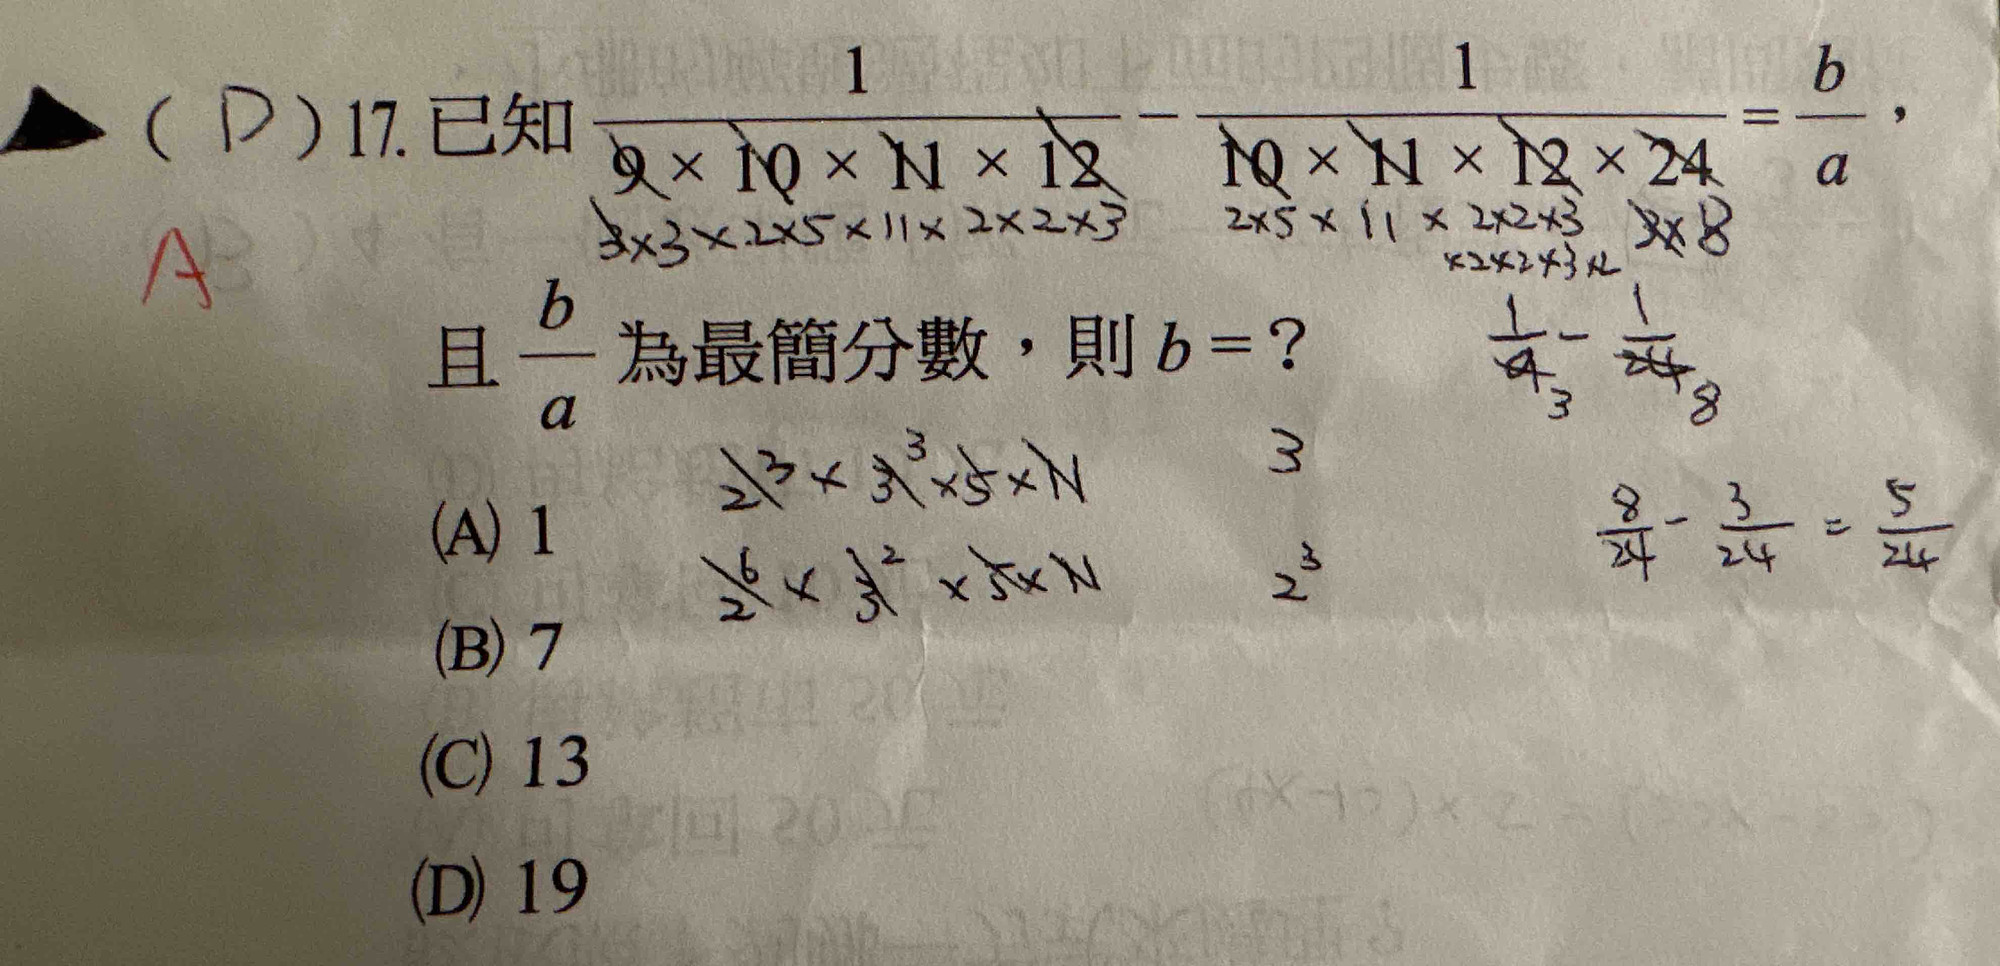 (D) 17. 已知 1/(9 × 10 × 11 × 12) − 1/(10 × 11 × 12 × 24) = b/a，
3×3×2×5×11×2×2×3 2×5×11×2×2×3 3×8
×2×2×3×2
A
且 b/a 為最簡分數，則 b = ?
1/9 3 − 1/24 8
2^3 × 3^3 × 5 × 11 3
(A) 1
8/24 − 3/24 = 5/24
2^6 × 3^2 × 5 × 11 2^3
(B) 7
(C) 13
(D) 19